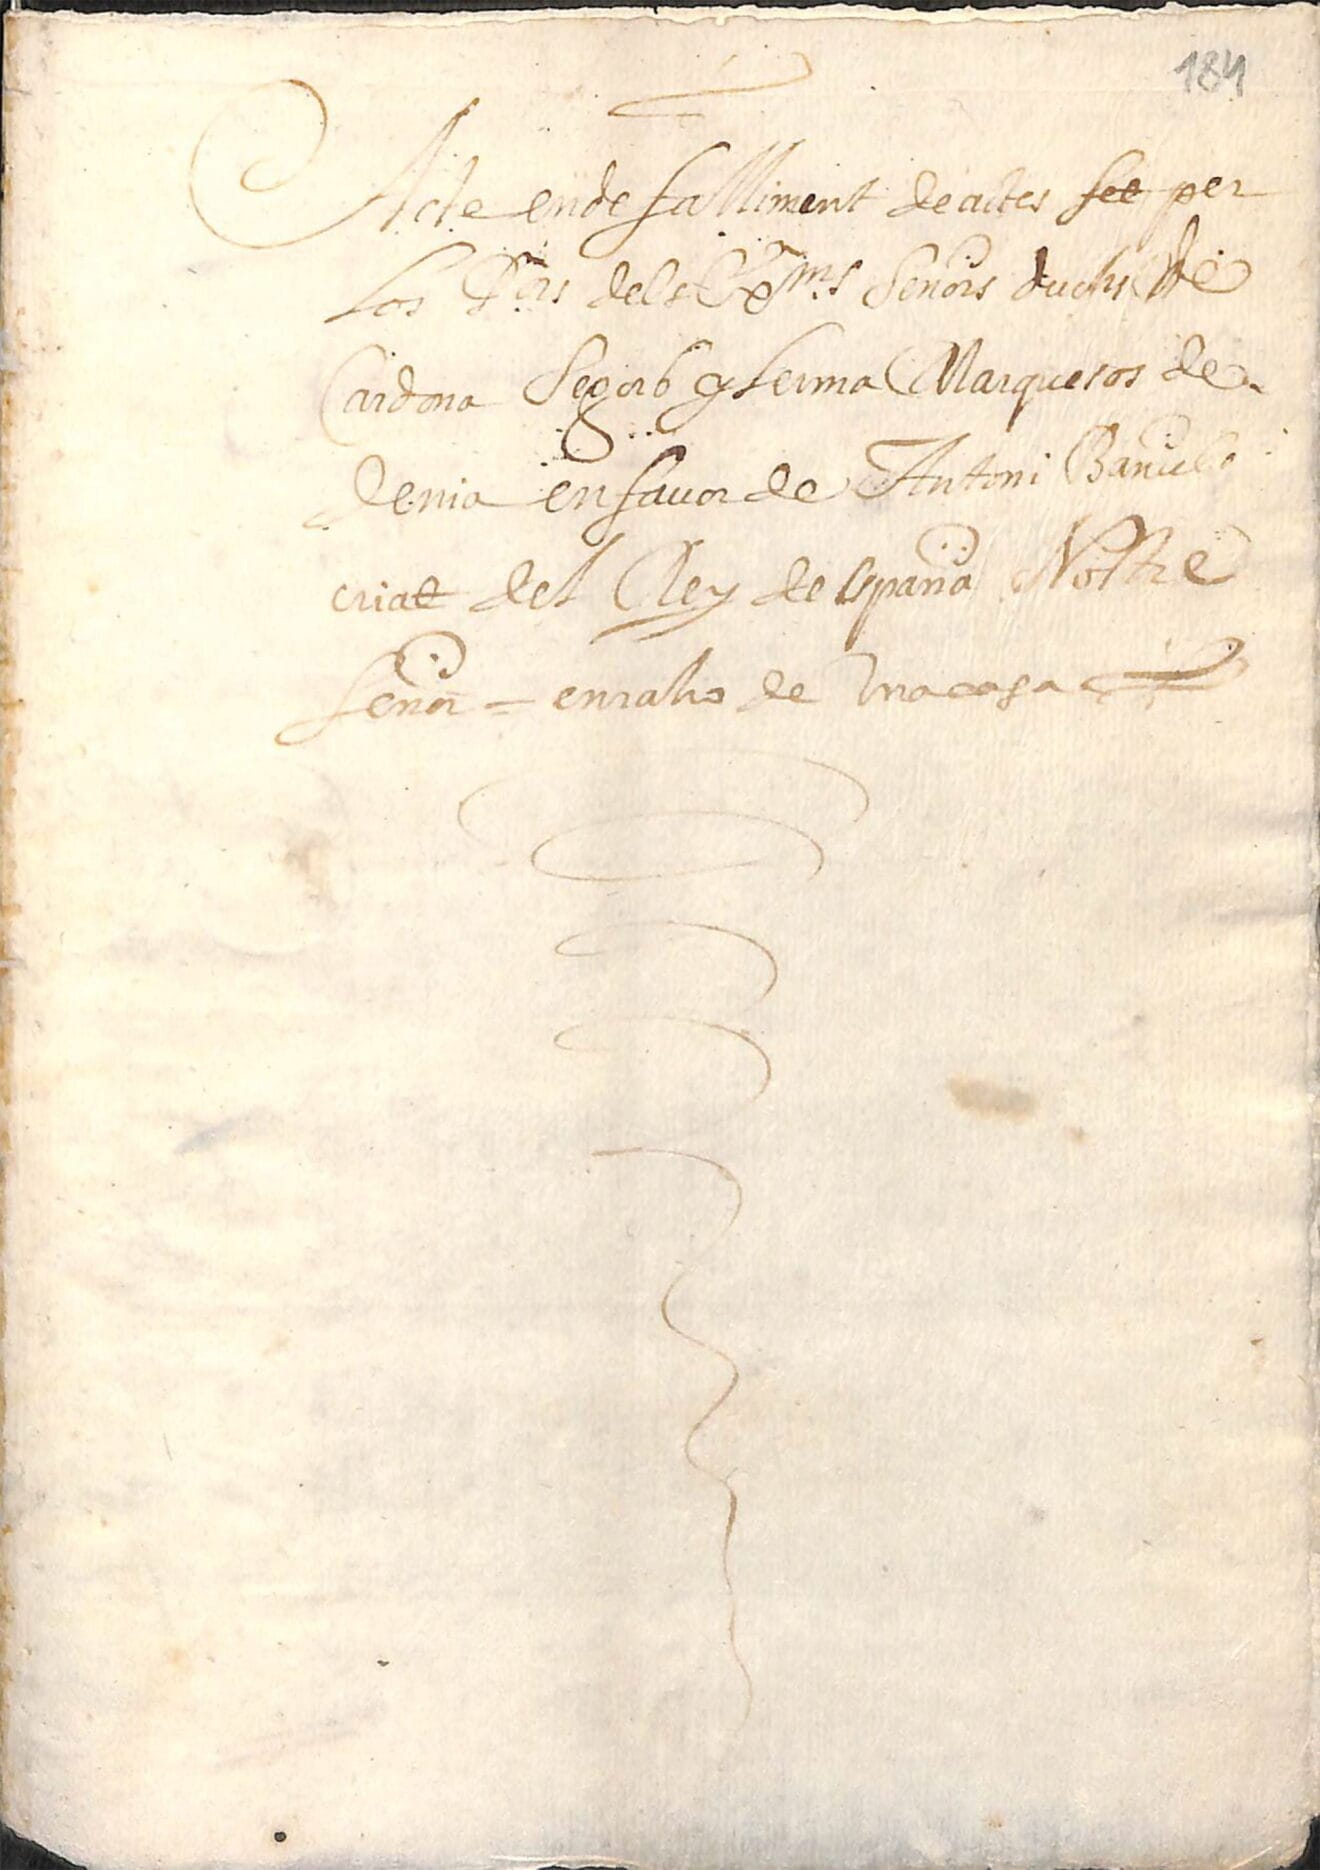 184
Acte en defalliment de actes fet per
los Pors dels Exms Señors duchs de
Cardona Segorb y Lerma Marquesos de
denia en favor de Antoni Bañuls
criat del Rey de España Nostre
Señor = en raho de Una casa